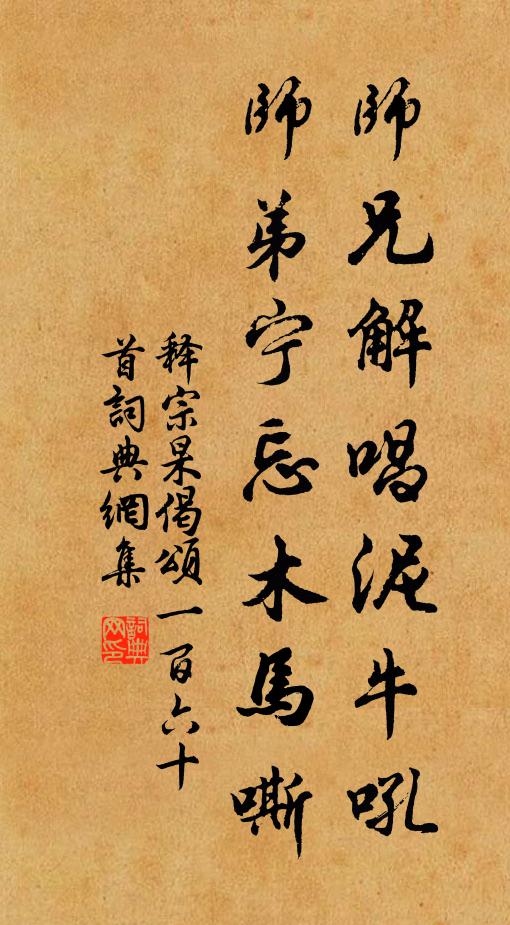 師兄解唱泥牛吼
師弟宁忘木馬嘶
释宗杲偈頌一百六十
首詞典網集
詞典網印